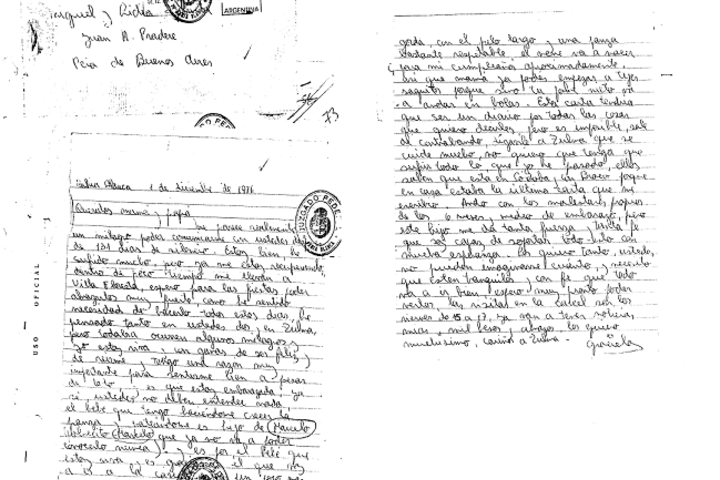 Miguel y Ridda
ARGENTINA
Juan A. Pradere
Pcia de Buenos Aires
73
Bahia Blanca 1 de diciembre de 1976
Queridos mama y papa
me parece realmente
un milagro poder comunicarme con ustedes después
de 121 días de silencio. Estoy bien he
sufrido mucho, pero ya me estoy recuperando,
dentro de poco tiempo me llevan a
Villa Floresta, espero para las fiestas poder
abrazarlos muy fuerte, como he sentido
necesidad de hacerlo todos estos dias, he
pensado tanto en ustedes dos, en Zulma,
pero todavia ocurren algunos milagros y
yo estoy viva y con ganas de ser feliz,
de reirme, y tengo una razon muy
importante para sentirme bien a pesar
de todo y es que estoy embarazada, ya
se ustedes no deben entender nada
el bebe que tengo haciendome crecer la
panza y es hijo de Marcelo
(Marcelo que ya no va a poder
conocerlo nunca) y es por el bebe que
estoy viva, es el que voy
a a la
USO OFICIAL
JUZGADO FEDE
gorda, con el pelo largo y una panza
bastante respetable, el nene va a nacer
para mi cumpleaños aproximadamente
asi que mamá ya podes empezar a tejer
saquitos porque sino tu nieto va
a andar en bolas. Esta carta tendria
que ser un diario por todas las cosas
que quiero decirles pero es imposible, sale
de contrabando, diganle a Zulma que se
cuide mucho, no quiero que tenga que
sufrir todo lo que yo he pasado, ellos
saben que esta en Cordoba, un Braco porque
en casa estaba la ultima carta que me
escribio. Ando con los malestares propios
de los 6 meses y medio de embarazo, pero
este hijo me da tanta fuerza y tanta fe
que soy capaz de soportar todo esto con
mucha esperanza. Los quiero tanto, ustedes
no pueden imaginarse cuánto, y necesito
que esten tranquilos y con fe que todo
va a ir bien, espero muy pronto poder
verlos las visitas en la carcel son los
viernes de 15 a 17, ya van a tener noticias
mias, mil besos y abrazos los quiero
muchisimo, cariños a Zulma.
Graciela